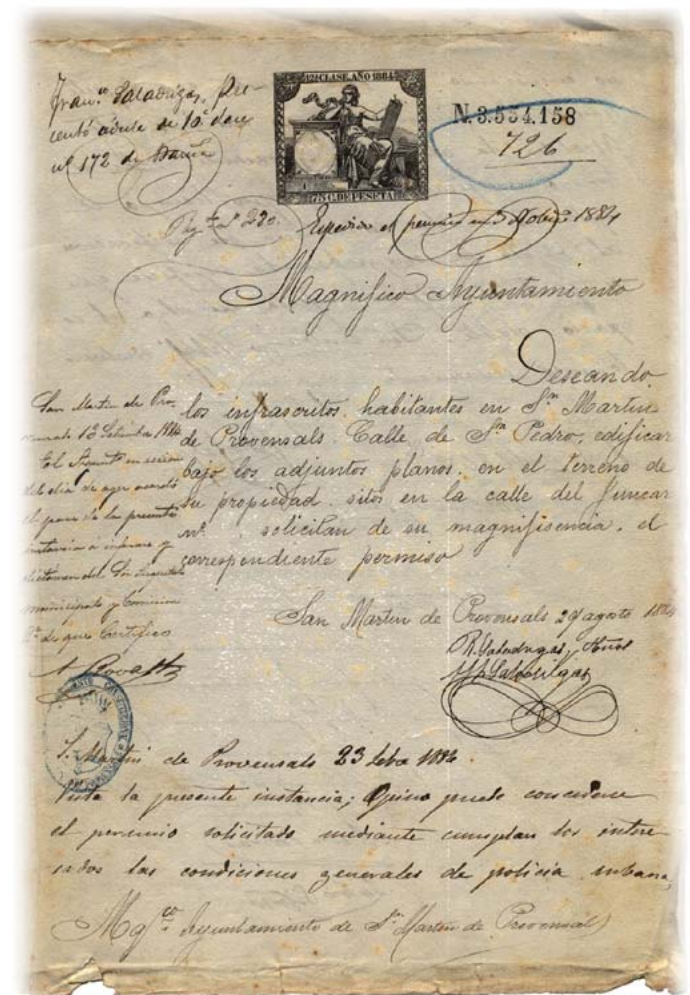 Fran.co Saladrigas, Pre-
sentó cédula de 10ª clase
nº 172 de Barna
12ª CLASE. AÑO 1884
75 C. DE PESETA
N. 3.554.158
726
230. Expedido el permiso en 3 8bre 1884
Magnifico Ayuntamiento
Deseando
los infrascritos, habitantes en Sn. Martin
de Provensals. Calle de Sn. Pedro, edificar
bajo los adjuntos planos, en el terreno de
su propiedad, sitos en la calle del Juncar
nº. , solicitan de su magnifisencia, el
correspondiente permiso
San Martin de Provensals 29 agosto 1884
San Martin de Pro-
vensals 13 Setiembre 1884
El en sesion
del dia de ayer acordó
el pase de la presente
instancia á informe y
dictamen del Sor.
municipal y Comision
2ª de que Certifico
S. Martin de Provensals 23 1884
Vista la presente instancia; Opino puede concederse
el permiso solicitado mediante cumplan los intere-
sados las condiciones generales de policia urbana,
Mgco. Ayuntamiento de Sn. Martin de Provensals